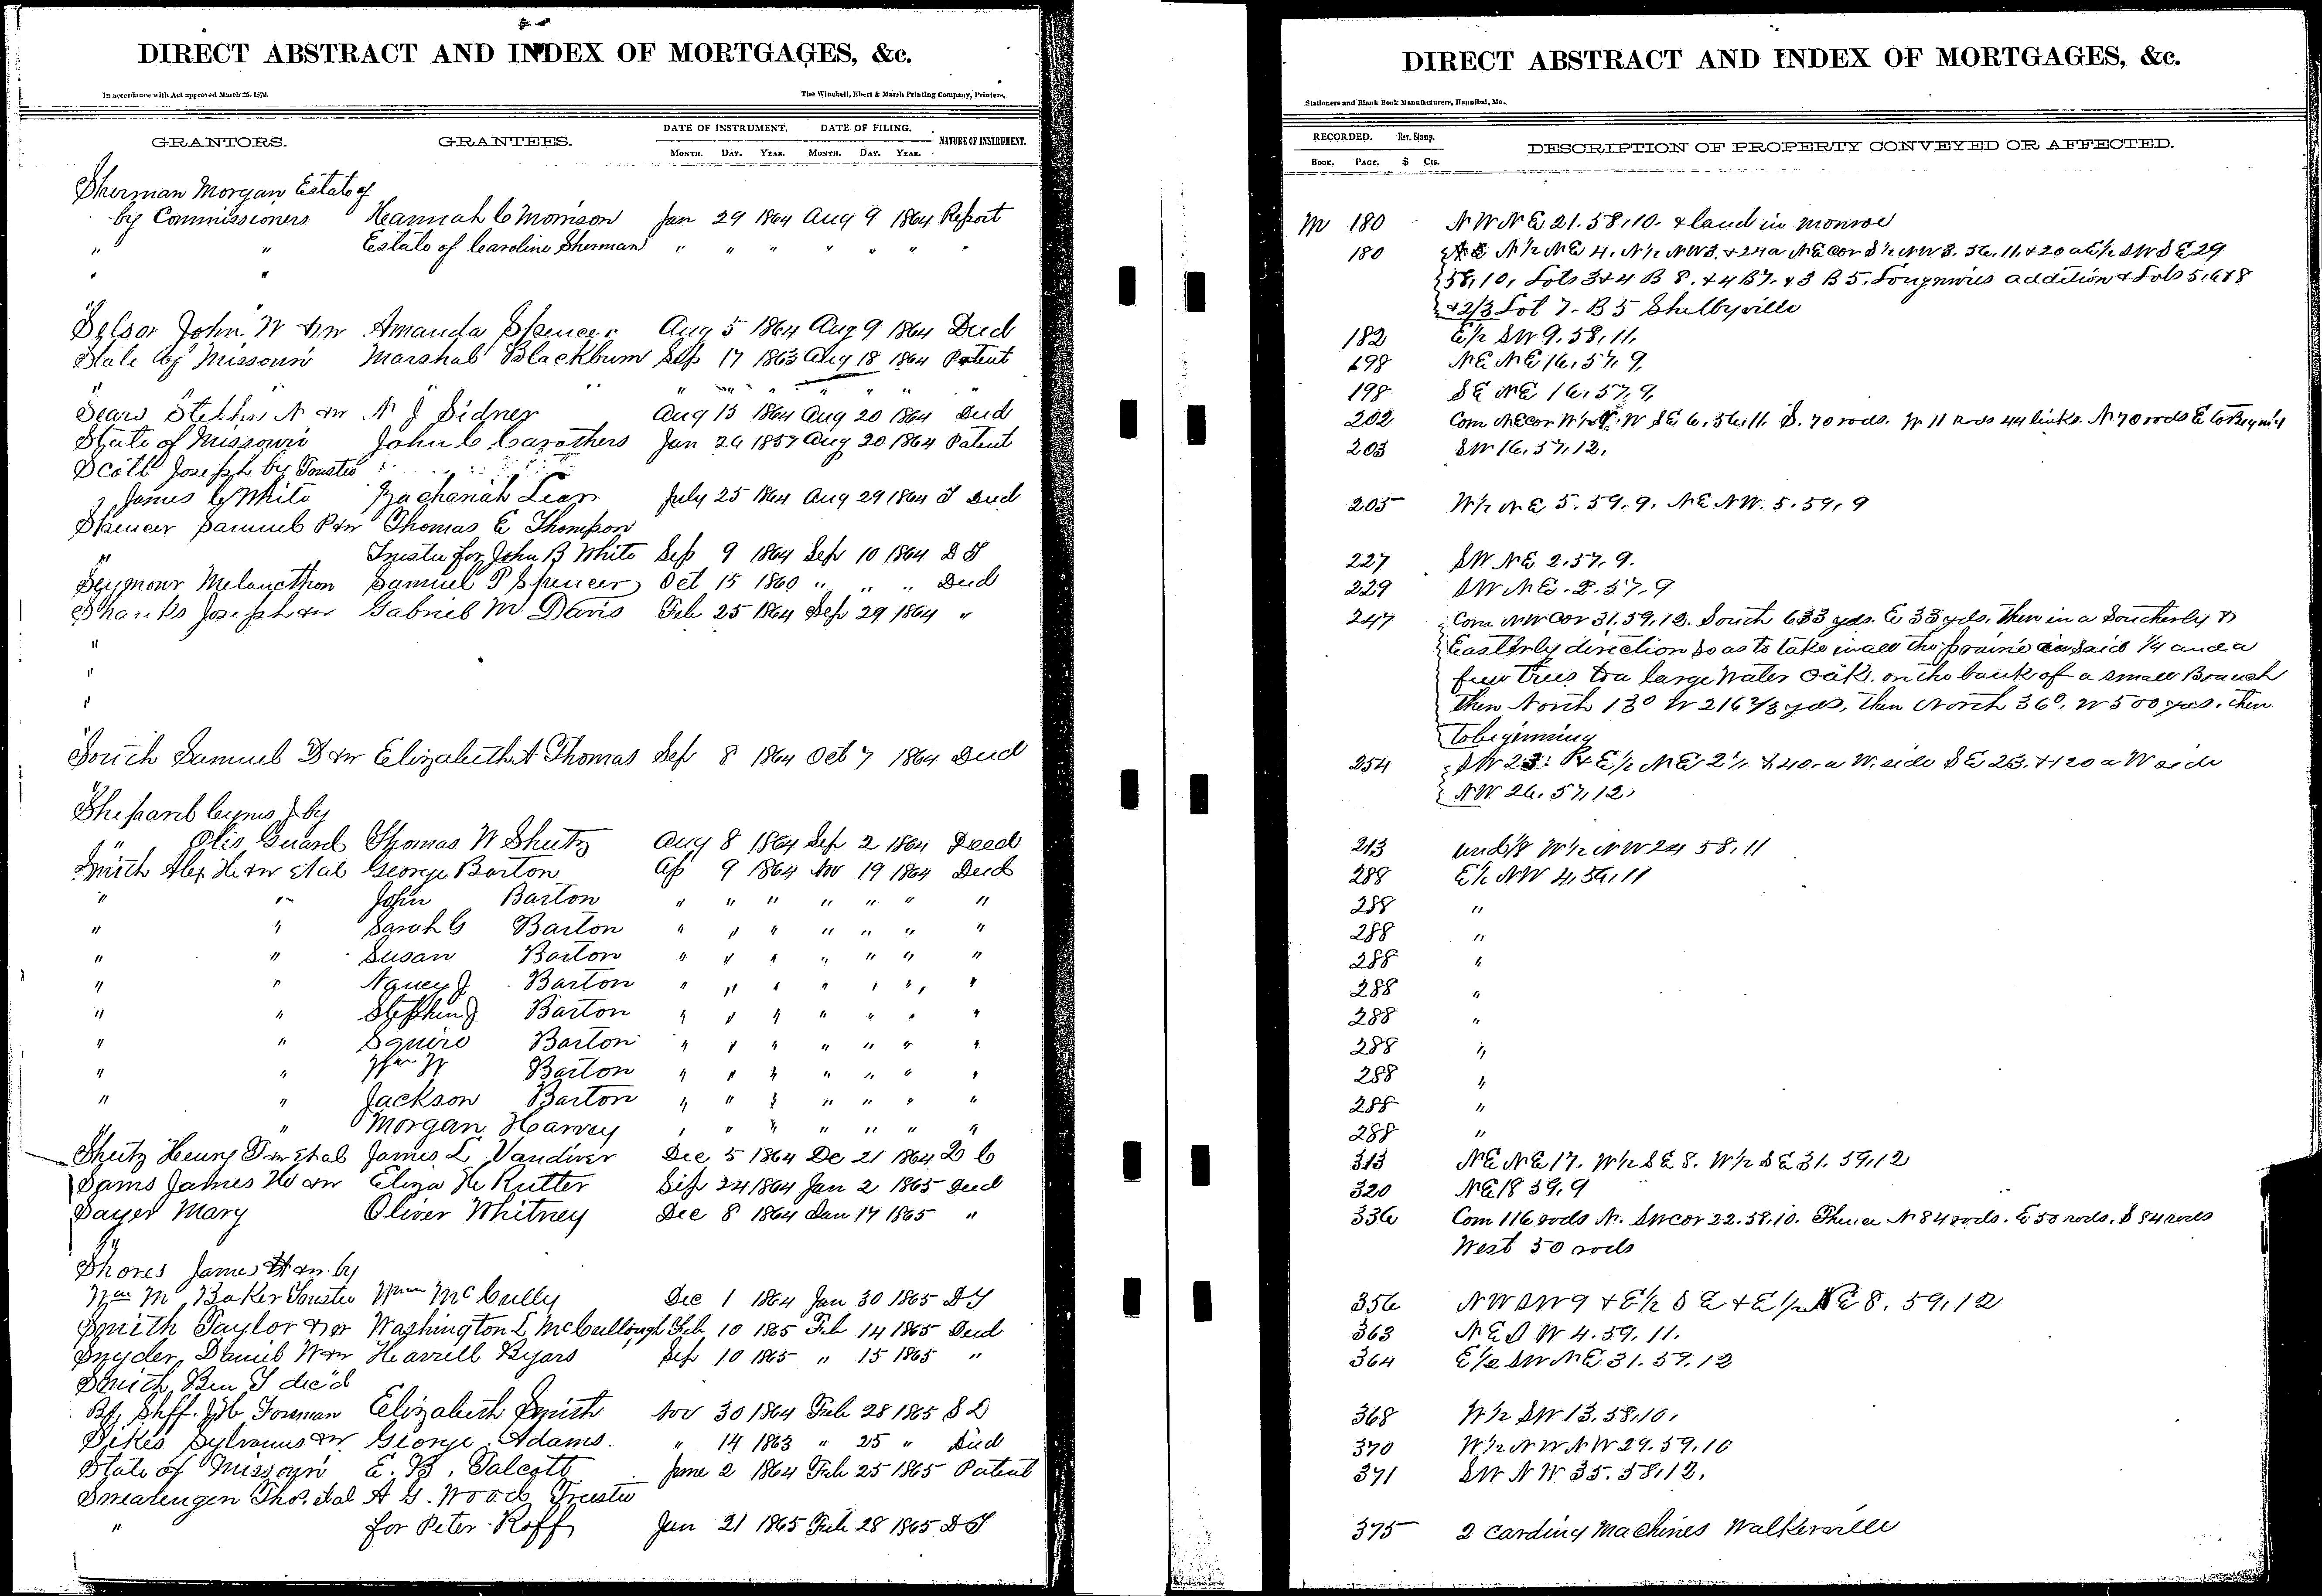 DIRECT ABSTRACT AND INDEX OF MORTGAGES, &c.
In accordance with Act approved March 25, 1870.
The Winchell, Ebert & Marsh Printing Company, Printers,
GRANTORS. GRANTEES. DATE OF INSTRUMENT. DATE OF FILING. NATURE OF INSTRUMENT.
MONTH. DAY. YEAR. MONTH. DAY. YEAR.
Sherman Morgan Estate of
by Commissioners Hannah C Morrison Jan 29 1864 Aug 9 1864 Report
" " Estate of Caroline Sherman " " " " " " "
" "
Selsor John W &w Amanda Spencer Aug 5 1864 Aug 9 1864 Deed
State of Missouri Marshal Blackburn Sep 17 1863 Aug 18 1864 Patent
" " " " " " " " "
Sears Stephen N &w N J Sidner Aug 13 1864 Aug 20 1864 Deed
State of Missouri John C Carothers Jan 26 1857 Aug 20 1864 Patent
Scott Joseph by Trustee
James C White Zachariah Lear July 25 1864 Aug 29 1864 T Deed
Spencer Samuel P &w Thomas E Thompson
" Trustee for John B White Sep 9 1864 Sep 10 1864 D T
Seymour Melancthon Samuel P Spencer Oct 15 1860 " " " Deed
Shanks Joseph &w Gabriel M Davis Feb 25 1864 Sep 29 1864 "
"
"
"
"
South Samuel D &w Elizabeth A Thomas Sep 8 1864 Oct 7 1864 Deed
"
Shepard Cyrus J by
" Otis Guard Thomas W Shutz Aug 8 1864 Sep 2 1864 Deed
Smith Alex H &w et al George Barton Ap 9 1864 Nov 19 1864 Deed
" " John Barton " " " " " " "
" " Sarah G Barton " " " " " " "
" " Susan Barton " " " " " " "
" " Nancy J Barton " " " " " " "
" " Stephen J Barton " " " " " " "
" " Squire Barton " " " " " " "
" " Wm W Barton " " " " " " "
" " Jackson Barton " " " " " " "
" " Morgan Harvey " " " " " " "
Shutz Henry T &w et al James L Vandiver Dec 5 1864 De 21 1864 D C
Sams James H &w Eliza H Rutter Sep 24 1864 Jan 2 1865 Deed
Sayer Mary Oliver Whitney Dec 8 1864 Jan 17 1865 "
"
Shores James H &w by
Wm M Baker Trustee Wm McCully Dec 1 1864 Jan 30 1865 D T
Smith Taylor &w Washington L McCullough Feb 10 1865 Feb 14 1865 Deed
Snyder Daniel W &w Harrell Byars Sep 10 1865 " 15 1865 "
Smith Ben J dec'd
By Shff. Foreman Elizabeth Smith Nov 30 1864 Feb 28 1865 S D
Sikes Sylvanus &w George Adams. " 14 1863 " 25 " Deed
State of Missouri E. B. Talcott June 2 1864 Feb 25 1865 Patent
Swearengen Thos. et al A G. Wood Trustee
" for Peter Roff Jan 21 1865 Feb 28 1865 D T
DIRECT ABSTRACT AND INDEX OF MORTGAGES, &c.
Stationers and Blank Book Manufacturers, Hannibal, Mo.
RECORDED. Rev. Stamp. DESCRIPTION OF PROPERTY CONVEYED OR AFFECTED.
BOOK. PAGE. $ Cts.
M 180 NW NE 21. 58, 10. & land in Monroe
180 N½ NE 4. N½ NW 3. & 24 a NE cor S½ NW 3. 56, 11. & 20 a E½ SW SE 29
58, 10, Lots 3 & 4 B 8. & 4 B 7. & 3 B 5. addition & Lots 5, 6 & 8
& 2/3 Lot 7. B 5 Shelbyville
182 E½ SW 9. 58, 11,
198 NE NE 16, 57, 9,
198 SE NE 16, 57, 9,
202 Com NE cor W SE 6, 56, 11. S. 70 rods. W 11 rods 44 links. N 70 rods E to Beginnig
203 SW 16, 57, 12,
205 W½ NE 5. 59. 9. NE NW. 5. 59, 9
227 SW NE 2. 57. 9.
229 SW NE. 2. 57. 9
247 Com NW cor 31. 59, 12. South 633 yds. E 33 yds, then in a Southerly &
Easterly direction so as to take in all the prairie in said ¼ and a
few trees to a large Water Oak. on the bank of a small Branch
then North 13° W 216 2/3 yds, then North 36°. W 500 yds. then
to beginning
254 SW 23. & E½ NE 21. & 40 a W. side SE 23. & 120 a W side
NW. 26. 57, 12,
213 und 1/8 W½ NW 24 58, 11
288 E½ NW 4, 56, 11
288 "
288 "
288 "
288 "
288 "
288 "
288 "
288 "
288 "
313 NE NE 17. W½ SE 8. W½ SE 31. 59, 12
320 NE 18 59, 9
336 Com 116 rods N. SW cor 22. 58, 10. Thence N 84 rods. E 50 rods. S 84 rods
West 50 rods
356 NW SW 9 & E½ SE & E½ NE 8. 59, 12
363 NE SW 4. 59. 11.
364 E½ SW NE 31. 59. 12
368 W½ SW 13. 58, 10,
370 W½ NW NW 29. 59. 10
371 SW NW 35. 58, 12.
375 2 carding Machines Walkersville